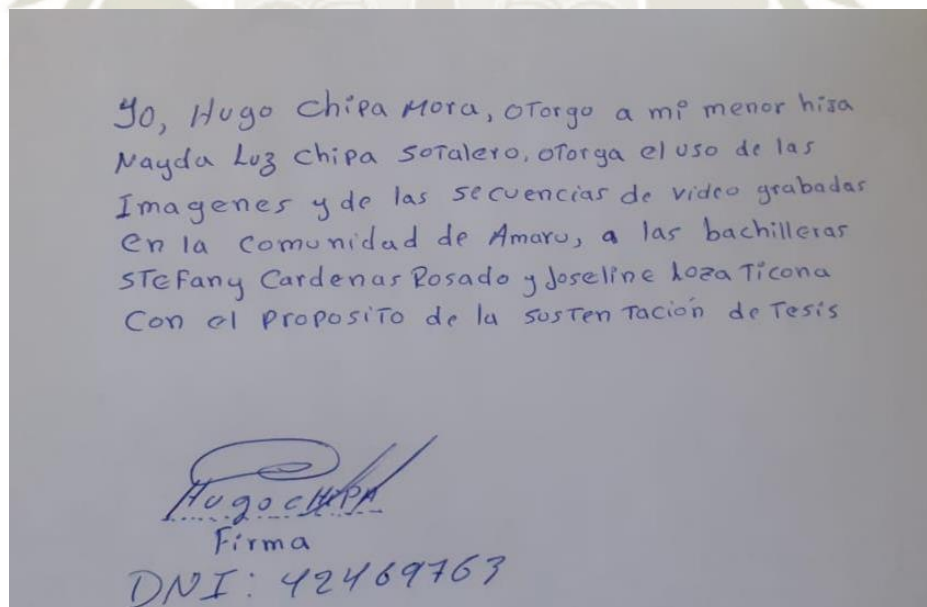 Yo, Hugo Chipa Mora, otorgo a mi menor hisa
Nayda Luz Chipa Sotalero, otorga el uso de las
Imagenes y de las secuencias de video grabadas
en la comunidad de Amaru, a las bachilleras
Stefany Cardenas Rosado y Joseline Loza Ticona
Con el proposito de la sustentación de Tesis
Hugo CHIPA
Firma
DNI: 42469763